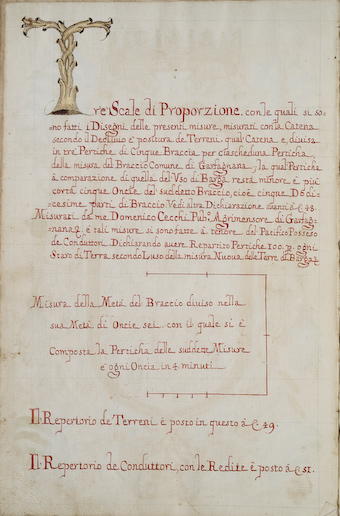 Tre Scale di Proporzione, con le quali si so=
=no fatti i Disegni delle presenti misure, misurati con la Catena
secondo il Declivio e postura de Terreni, qual' Catena e, divisa
in tre Pertiche di Cinque Braccia per ciascheduna Perticha
della misura del Braccio Comune di Garfagnana, la qual Perticha
à comparazione di quella del Vso di Barga resta minore e più
corta cinque Oncie del suddetto Braccio, cioè cinque Dodi=
=cesime parti di Braccio. Vedi altra Dichiarazione avanti à C. 48.
Misurati da me Domenico Cecchi Pub.º Agrimensore di Garfag=
=nana, e tali misure si sono fatte à tenore del Pacifico Possesso
de Conduttori. Dichiarando avere Repartito Pertiche 100. p. ogni
Staro di Terra secondo L'uso della misura Nuova delle Terre di Barga
Misura della Metà del Braccio diuiso nella
sua Metà di Oncie sei. con il quale si è
Composta la Perticha delle suddette Misure
e ogni Oncia in 4. minuti
Il Repertorio de Terreni è posto in questo à C. 49.
Il Repertorio de Conduttori, con le Redite è posto à C. 51.